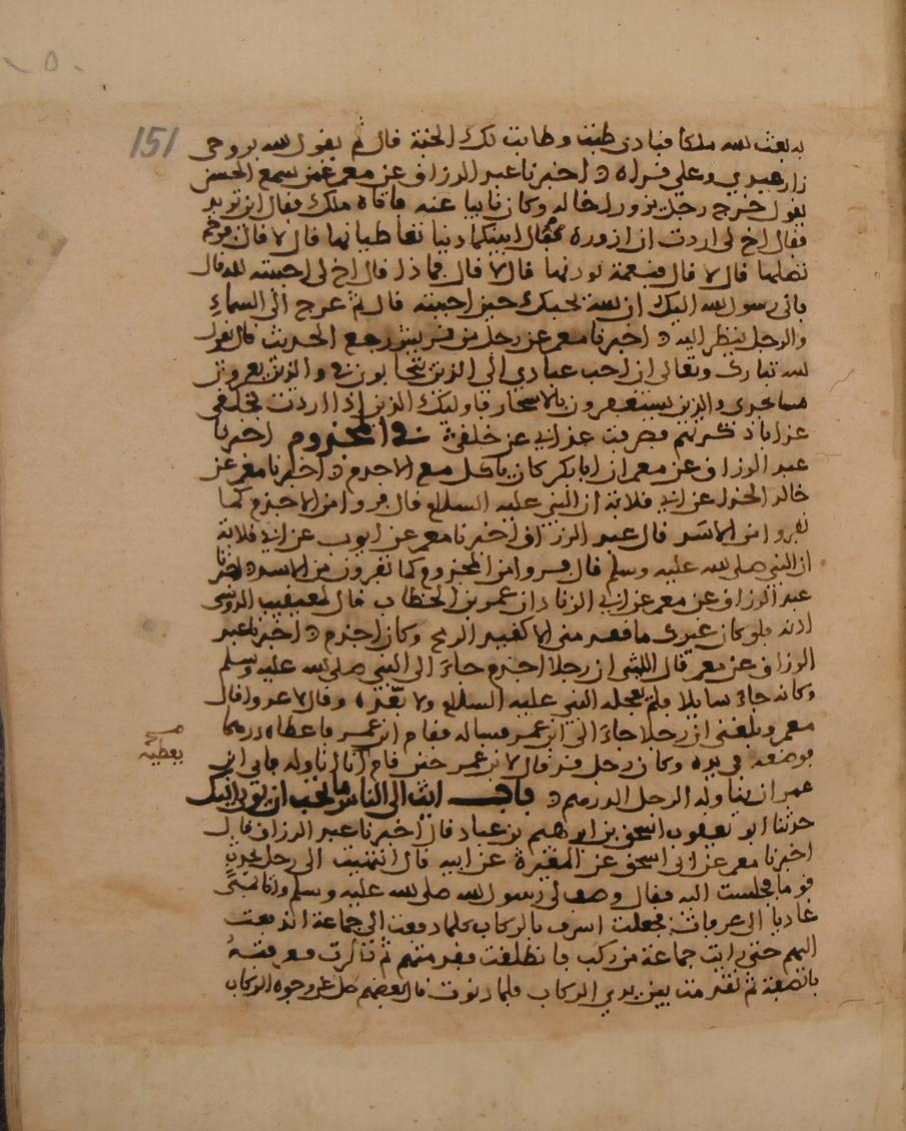 151
به بعث الله ملكا فنادى طبت وطابت لك الجنة قال ثم يقول الله بروحي
زار عبدي وعلي قراه ه اخبرنا عبد الرزاق عن معمر عمن سمع الحسن
يقول خرج رجل يزور اخا له وكان نايبا عنه فاتاه ملك فقال اين تريد
فقال اخ لي اردت ان ازوره فقال ابينكما دنيا تعاطيانها قال لا قال فرحم
تصلها قال لا قال فنعمة تربها قال لا قال فماذا قال اخ لي احببته لله قال
فاني رسول الله اليك ان الله يحبك حين احببته قال ثم عرج الى السماء
والرجل ينظر اليه ه اخبرنا معمر عن رجل من قريش رجع الحديث قال يقول
الله تبارك وتعالى ان احب عبادي الي الذين يتحابون في والذين يعمرون
مساجدي والذين يستغفرون بالاسحار فاوليك الذين اذا اردت بخلقي
عذابا ذكرتهم فصرفت عذابي عن خلقي في المجذوم اخبرنا
عبد الرزاق عن معمر ان ابا بكر كان ياكل مع الاجذم ه اخبرنا معمر عن
خالد الحذا عن ابي قلابة ان النبي عليه السلام قال فروا من الاجذم كما
تفروا من الاسد قال عبد الرزاق اخبرنا معمر عن ايوب عن ابي قلابة
ان النبي صلى الله عليه وسلم قال فروا من المجذوم كما تفرون من الاسد ه اخبرنا
عبد الرزاق عن معمر عن ابي الزناد ان عمر بن الخطاب قال لمعيقيب الدوسي
ادنه فلو كان غيرك ما قعد مني الا كقيد الرمح وكان اجذم ه اخبرنا عبد
الرزاق عن معمر قال بلغني ان رجلا اجذم جاء الى النبي صلى الله عليه وسلم
وكانه جاء سايلا فلم يعجله النبي عليه السلام ولا نفره وقال لا عدوا قال
معمر وبلغني ان رجلا جاء الى ابن عمر فساله فقام ابن عمر فاعطاه درهما
يعطيه
فوضعه في يده وكان رجل قد قال لابن عمر حين قام انا اناوله فابى ابن
عمر ان يناوله الرجل الدرهم ه باب ايت الى الناس ما تحب ان يوتى اليك
حدثنا ابو يعقوب اسحق بن ابرهيم بن عباد قال اخبرنا عبد الرزاق قال
اخبرنا معمر عن ابي اسحق عن المغيرة عن ابيه قال انتهيت الى رجل يحدث
قوما فجلست اليه فقال وصف لي رسول الله صلى الله عليه وسلم وانا بمنى
غاديا الى عرفات فجعلت استشرف بالركاب كلما دفعت الى جماعة اندفعت
اليهم حتى رايت جماعة من ركب فانطلقت فقدمتهم ثم فعرفته
بالصفة ثم تقدمت بين يدي الركاب فلما دنوت قال بعضهم خل عن وجوه الركاب